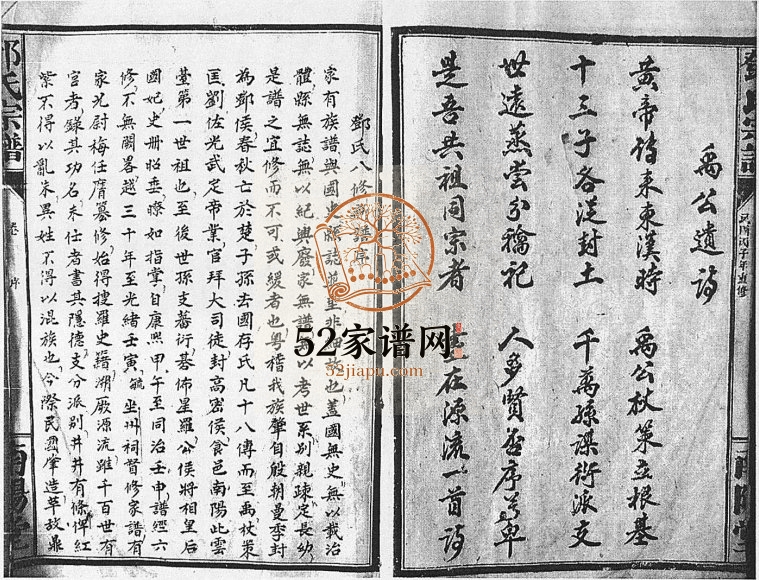 禹公遺詩
黃帝傳來東漢時 禹公杖策立根基
十三子各從封土 千萬孫謀衍派支
世遠蒸嘗分禴祀 人多賢否序尊卑
是吾共祖同宗者 在源流一首詩
民國丙子年重修
南陽堂
鄧氏八修 譜序
家有族譜與國史縣誌 非 也蓋國無史無以載治
體縣無誌無以紀興廢家無譜 以考世系別親疎定長幼
是譜之宜修而不可或緩者也粵稽我族肇自殷朝曼季封
為鄧侯春秋亡於楚子孫去國存氏凡十八傳而至禹杖策
匡劉佐光武定帝業官拜大司徒封高密侯食邑南陽此雲
臺第一世祖也至後世孫支蕃衍碁佈星羅公侯將相皇后
國妃史冊昭垂瞭如指掌自康熙甲午至同治壬申譜經六
修不無闕畧越三十年至光緒壬寅毓坐州祠督修家譜有
家光尉梅任膺纂修始得搜羅史籍溯厥源流雖千百世有
官者錄其功名未仕者書其隱德支分派別井井有條俾紅
紫不得以亂朱異姓不得以混族也今際民國肇造革故鼎
鄧氏宗譜
卷 序
南陽堂
52家谱网
52jiapu.com